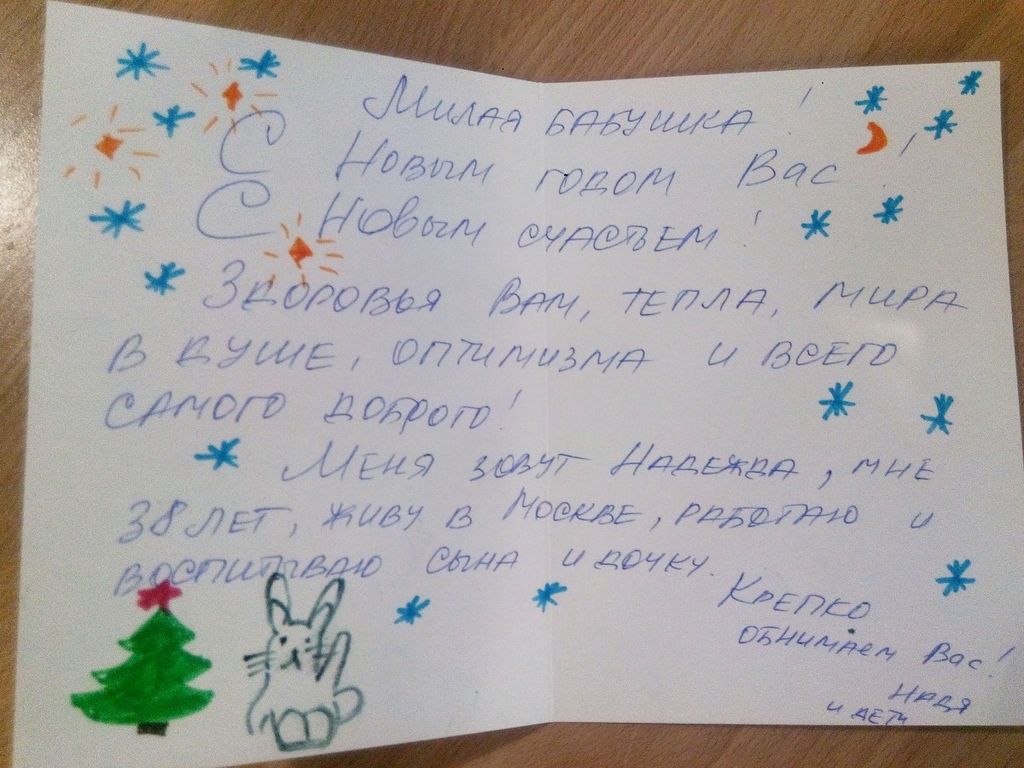 Милая бабушка!
С Новым годом Вас!
С Новым счастьем!
Здоровья Вам, тепла, мира
в душе, оптимизма и всего
самого доброго!
Меня зовут Надежда, мне
38 лет, живу в Москве, работаю и
воспитываю сына и дочку.
Крепко
обнимаем Вас!
Надя
и дети